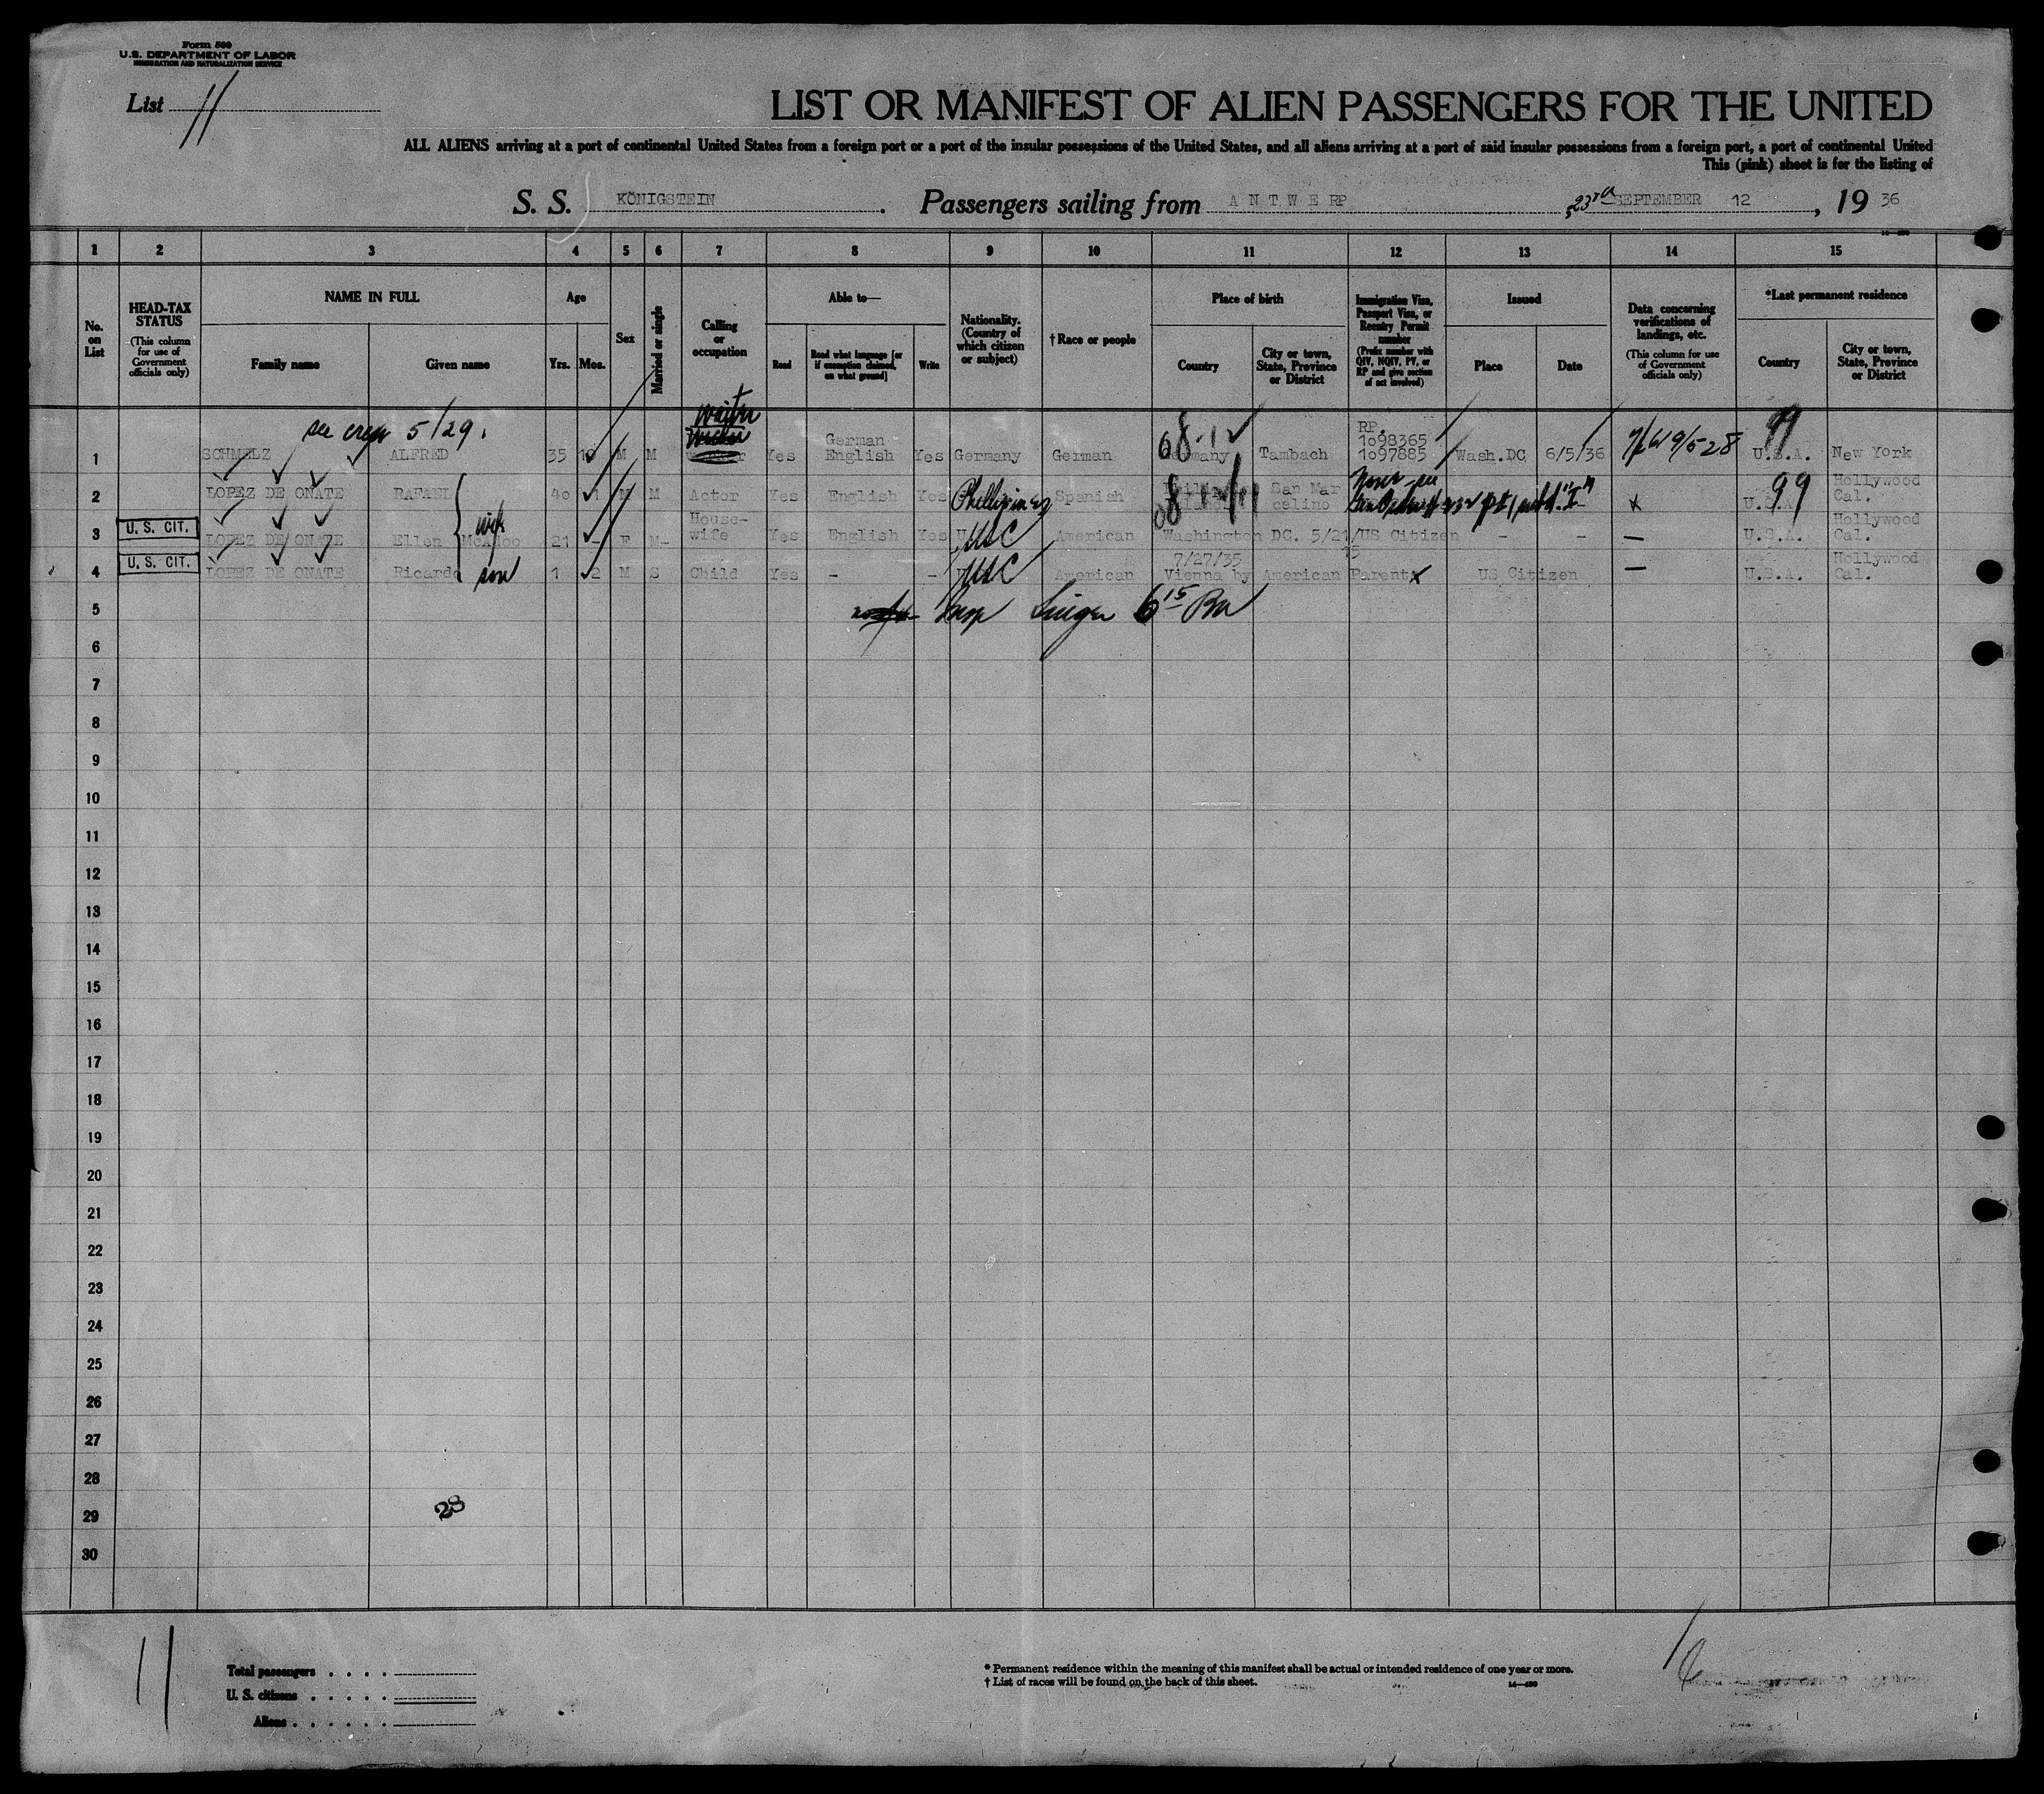 Form 500
U.S. DEPARTMENT OF LABOR
IMMIGRATION AND NATURALIZATION SERVICE
List 11
LIST OR MANIFEST OF ALIEN PASSENGERS FOR THE UNITED
ALL ALIENS arriving at a port of continental United States from a foreign port or a port of the insular possessions of the United States, and all aliens arriving at a port of said insular possessions from a foreign port, a port of continental United
This (pink) sheet is for the listing of
S. S. KÖNIGSTEIN. Passengers sailing from ANTWERP, 23rd SEPTEMBER 12, 19 36
1 2 3 4 5 6 7 8 9 10 11 12 13 14 15
No. on List
HEAD-TAX STATUS (This column for use of Government officials only)
NAME IN FULL
Family name
Given name
Age
Yrs. Mos.
Sex
Married or single
Calling or occupation
Able to—
Read
Read what language [or if exemption claimed, on what ground]
Write
Nationality. (Country of which citizen or subject)
† Race or people
Place of birth
Country
City or town, State, Province or District
Immigration Visa, Passport Visa, or Reentry Permit number (Prefix number with QIV, NQIV, PV, or RP and give section of act involved)
Issued
Place
Date
Data concerning verifications of landings, etc. (This column for use of Government officials only)
*Last permanent residence
Country
City or town, State, Province or District
see crew 5/29.
waiter
68-12
99
1 SCHMELZ ALFRED 35 10 M M Yes German English Yes Germany German Germany Tambach RP. 1098365 1097885 Wash.DC 6/5/36 U.S.A. New York
2 LOPEZ DE ONATE RAFAEL 40 1 M M Actor Yes English Yes Phillipines Spanish San Marcelino x 99 U.S.A. Hollywood Cal.
3 U. S. CIT. LOPEZ DE ONATE Ellen McAdoo wife 21 - F M- Housewife Yes English Yes USC American Washington DC. 5/21/15 US Citizen - - — U.S.A. Hollywood Cal.
4 U. S. CIT. LOPEZ DE ONATE Ricardo son 1 2 M S Child Yes - - USC American 7/27/35 Vienna by American Parents US Citizen — U.S.A. Hollywood Cal.
5 Insp
6
7
8
9
10
11
12
13
14
15
16
17
18
19
20
21
22
23
24
25
26
27
28
29
30
28
11
Total passengers . . . .
U. S. citizens . . . . .
Aliens . . . . . .
* Permanent residence within the meaning of this manifest shall be actual or intended residence of one year or more.
† List of races will be found on the back of this sheet.